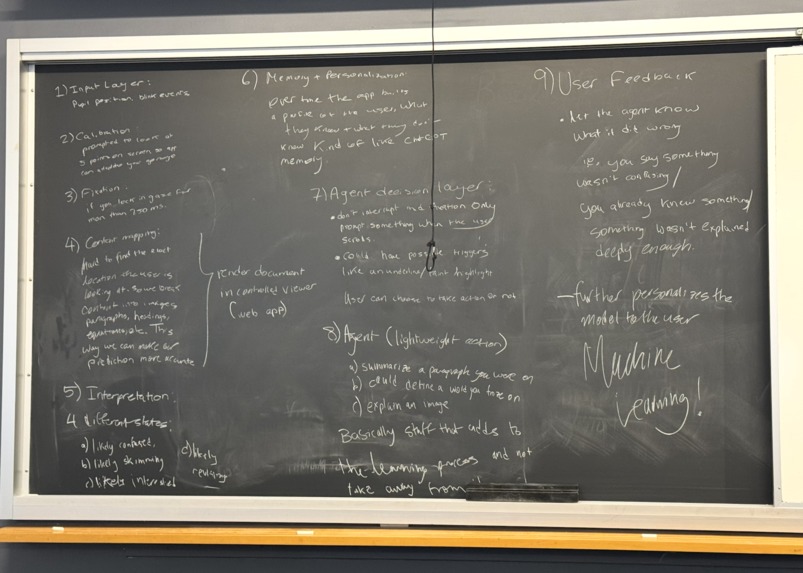 1) Input Layer:
Pupil position, blink events
2) Calibration:
prompted to look at
5 points on screen so app
can your gaze
3) Fixation:
if you lock in gaze for
more than 250 ms.
4) Content mapping:
Hard to find the exact
location the user is
looking at. So we break
content into images,
paragraphs, headings,
equations, etc. This
way we can make our
prediction more accurate
render document
in controlled viewer
(web app)
5) Interpretation:
4 different states:
a) likely confused,
b) likely skimming
c) likely interested
d) likely
6) Memory + Personalization:
Over time the app builds
a profile on the user, what
they know + what they don't
know kind of like ChatGPT
memory.
7) Agent decision layer:
• don't interrupt mid Only
prompt something when the user
• could have possible triggers
like an underline, highlight
User can choose to take action or not
8) Agent (lightweight action)
a) summarize a paragraph you were on
b) could define a word you froze on
c) explain an image
Basically stuff that adds to
the learning process and not
take away from
9) User Feedback
• let the agent know
what it did wrong
ie, you say something
wasn't confusing/
you already knew something/
something wasn't explained
deeply enough.
— further personalizes the
model to the user
Machine
Learning!